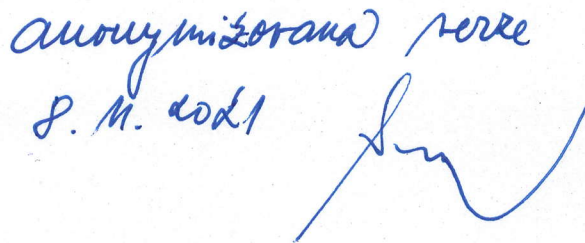 anonymizovaná verze
8. 11. 2021